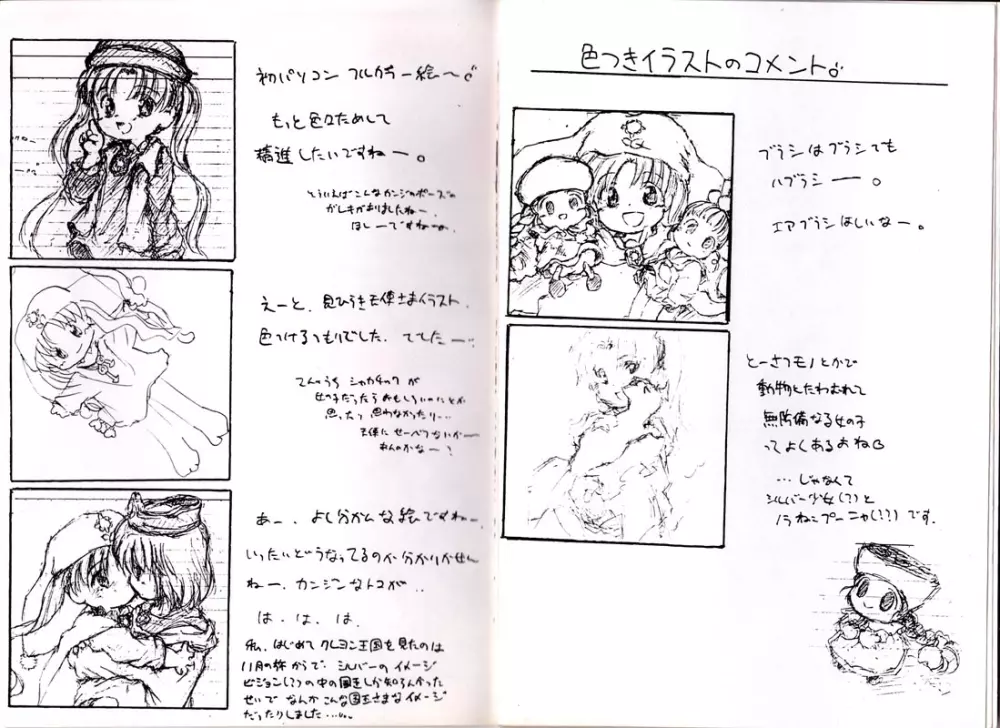 色つきイラストのコメント。
ブラシはブラシでも
ハブラシー。
エアブラシほしいなー。
とーさつモノとかで
動物とたわむれて
無防備なる女の子
ってよくあるおね
…じゃなくて
シルバー少女(?)と
ノラねこプーニャ(??)です.
初パソコン フルカラー絵～
もっと色々ためして
精進したいですねー。
そういえばこんなカンジのポーズの
ガレキがありましたねー.
ほしーですねー.
えーと、見ひらき天使さまイラスト.
色つけるつもりでした. でしたー…
てんのうち シャカチック が
女の子だったらおもしろいのにとか
思ったり 思わなかったり…
天使に せーべつないかー
あー. よく分かんな絵ですねー.
いったいどうなってるのか分かりません
ねー. カンジンなトコが..
は. は. は.
私、はじめて クレヨン王国を見たのは
11月の終からで. シルバーの イメージ
ビジョン(?)の中の国王しか知らんかった
せいで なんか こんな国王さまなイメージ
だったりしました……